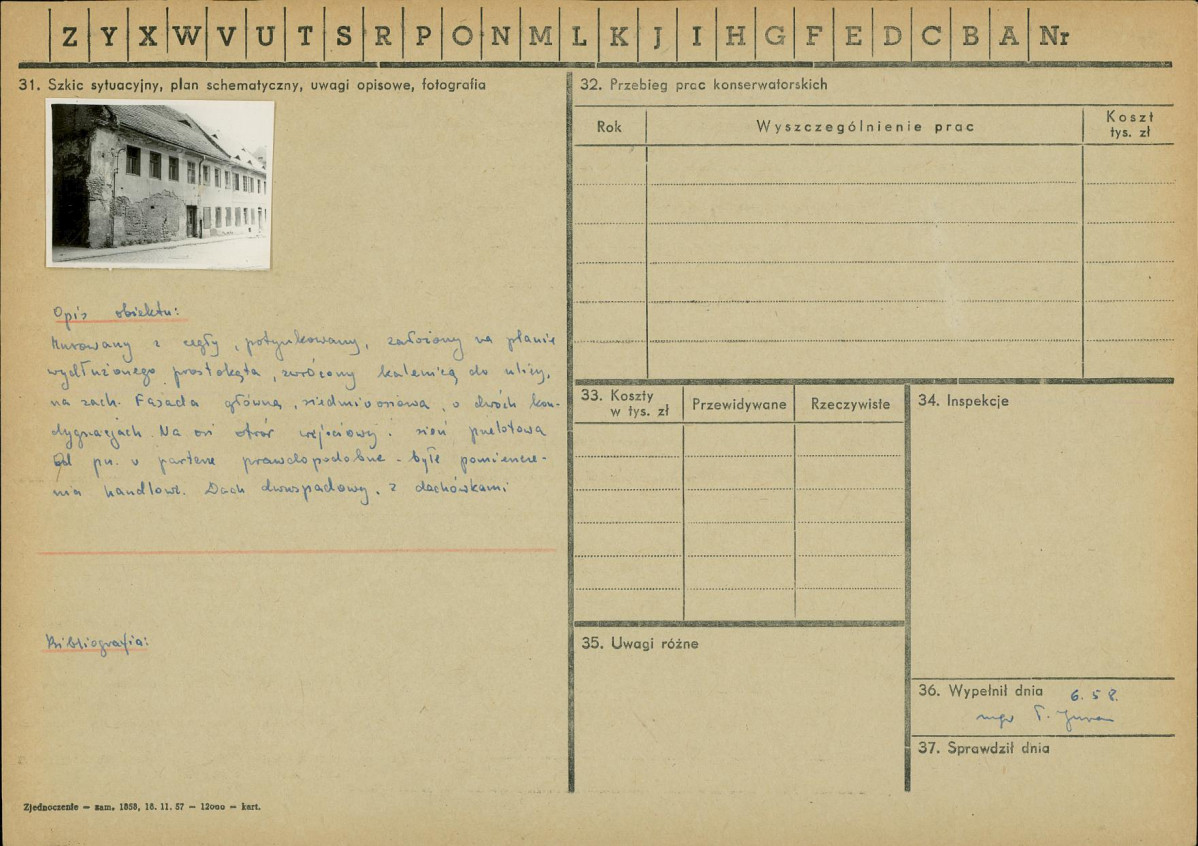 Z Y X W V U T S R P O N M L K J I H G F E D C B A Nr
31. Szkic sytuacyjny, plan schematyczny, uwagi opisowe, fotografia
Opis obiektu:
Murowany z cegły, potynkowany, założony na planie
wydłużonego prostokąta, zwrócony kalenicą do ulicy,
na zach. Fasada główna, siedmioosiowa, o dwóch kon-
dygnacjach. Na osi otwór wejściowy: sień przelotowa
Od pn. w parterze prawdopodobne - byłe pomieszcze-
nia handlowe. Dach dwuspadowy, z dachówkami
Bibliografia:
Zjednoczenie — zam. 1858, 16. 11. 57 — 12000 — kart.
32. Przebieg prac konserwatorskich
Rok Wyszczególnienie prac Koszt tys. zł
33. Koszty w tys. zł Przewidywane Rzeczywiste
34. Inspekcje
35. Uwagi różne
36. Wypełnił dnia 6. 5 8.
mgr T.
37. Sprawdził dnia